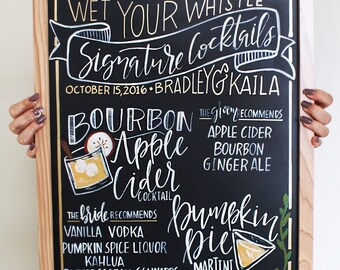 WET YOUR WHISTLE
Signature Cocktails
OCTOBER 15, 2016 • BRADLEY & KAILA
BOURBON
Apple
Cider
COCKTAIL
THE groom RECOMMENDS
APPLE CIDER
BOURBON
GINGER ALE
THE bride RECOMMENDS
VANILLA VODKA
PUMPKIN SPICE LIQUOR
KAHLUA
Pumpkin
Pie
MARTINI